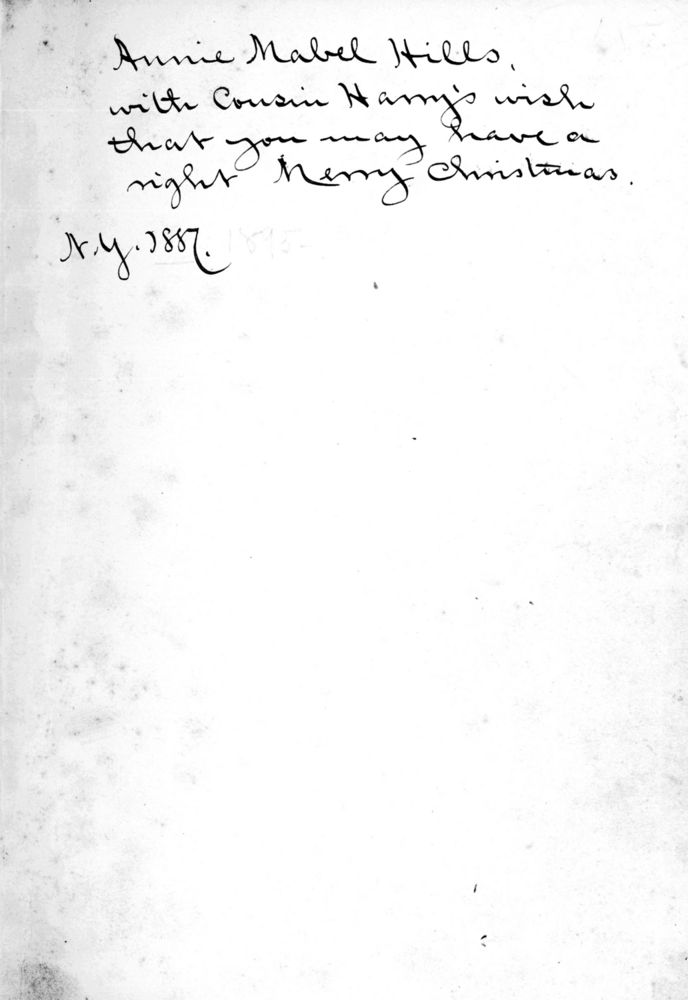 Annie Mabel Hills,
with Cousin Harry's wish
that you may have a
right Merry Christmas.
N.Y. 1887. 1895-